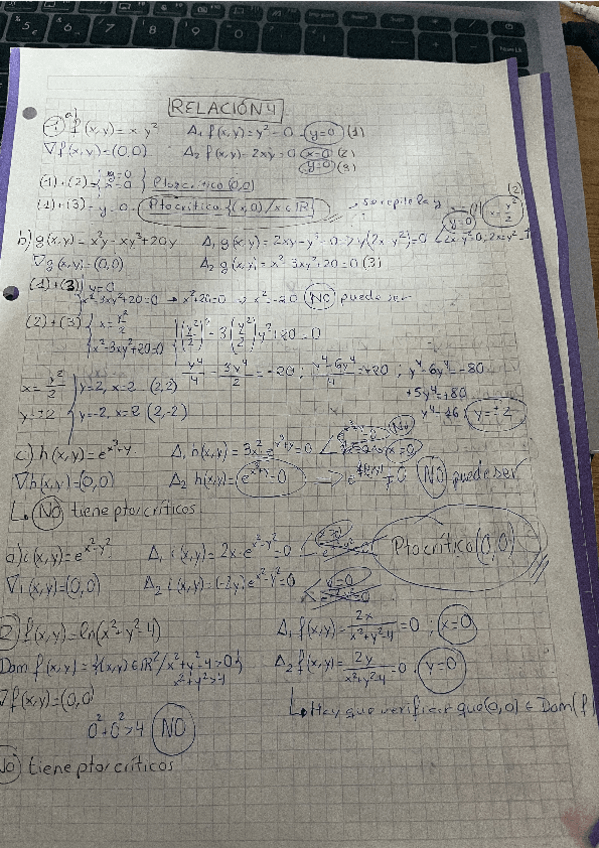 RELACIÓN 4
① a) f(x,y) = x y² Δ₁ f(x,y) = y² = 0 y=0 (1)
∇f(x,y) = (0,0) Δ₂ f(x,y) = 2xy = 0 x=0 (2)
y=0 (3)
(1)+(2) = {y=0 x=0} Pto crítico (0,0)
(1)+(3) = y=0 Pto crítico {(x,0)/x∈ℝ} se repite la y
b) g(x,y) = x²y - xy³ + 20y Δ₁ g(x,y) = 2xy - y³ = 0 y(2x-y²)=0 y=0 (1) x = y²/2 (2)
∇g(x,y) = (0,0) Δ₂ g(x,y) = x² - 3xy² + 20 = 0 (3)
(1)+(3) { y=0 x²-3xy²+20=0 → x²+20=0 x²=-20 NO puede ser
(2)+(3) { x = y²/2 x²-3xy²+20=0 (y²/2)² - 3(y²/2)y² + 20 = 0
y⁴/4 - 3y⁴/2 = -20 ; y⁴-6y⁴/4 = -20 ; y⁴-6y⁴ = -80
+5y⁴=+80
x = y²/2 y=2, x=2 (2,2)
y=±2 y=-2, x=2 (2,-2) y⁴=16, y=±2
c) h(x,y) = e^(x³+y) Δ₁ h(x,y) = 3x² e^(x³+y) = 0 x=0
∇h(x,y) = (0,0) Δ₂ h(x,y) = e^(x³+y) = 0 NO puede ser
NO tiene ptos críticos
a) i(x,y) = e^(x²-y²) Δ₁ i(x,y) = 2x·e^(x²-y²) = 0 x=0 Pto crítico (0,0)
∇i(x,y) = (0,0) Δ₂ i(x,y) = (-2y)e^(x²-y²) = 0 y=0
② f(x,y) = ln(x²+y²-4) Δ₁ f(x,y) = 2x/(x²+y²-4) = 0 ; x=0
Dom f(x,y) = {(x,y)∈ℝ²/x²+y²-4>0} Δ₂ f(x,y) = 2y/(x²+y²-4) = 0 y=0
x²+y²>4
∇f(x,y) = (0,0) Hay que verificar que (0,0) ∈ Dom(f
0²+0²>4 NO
NO tiene ptos críticos